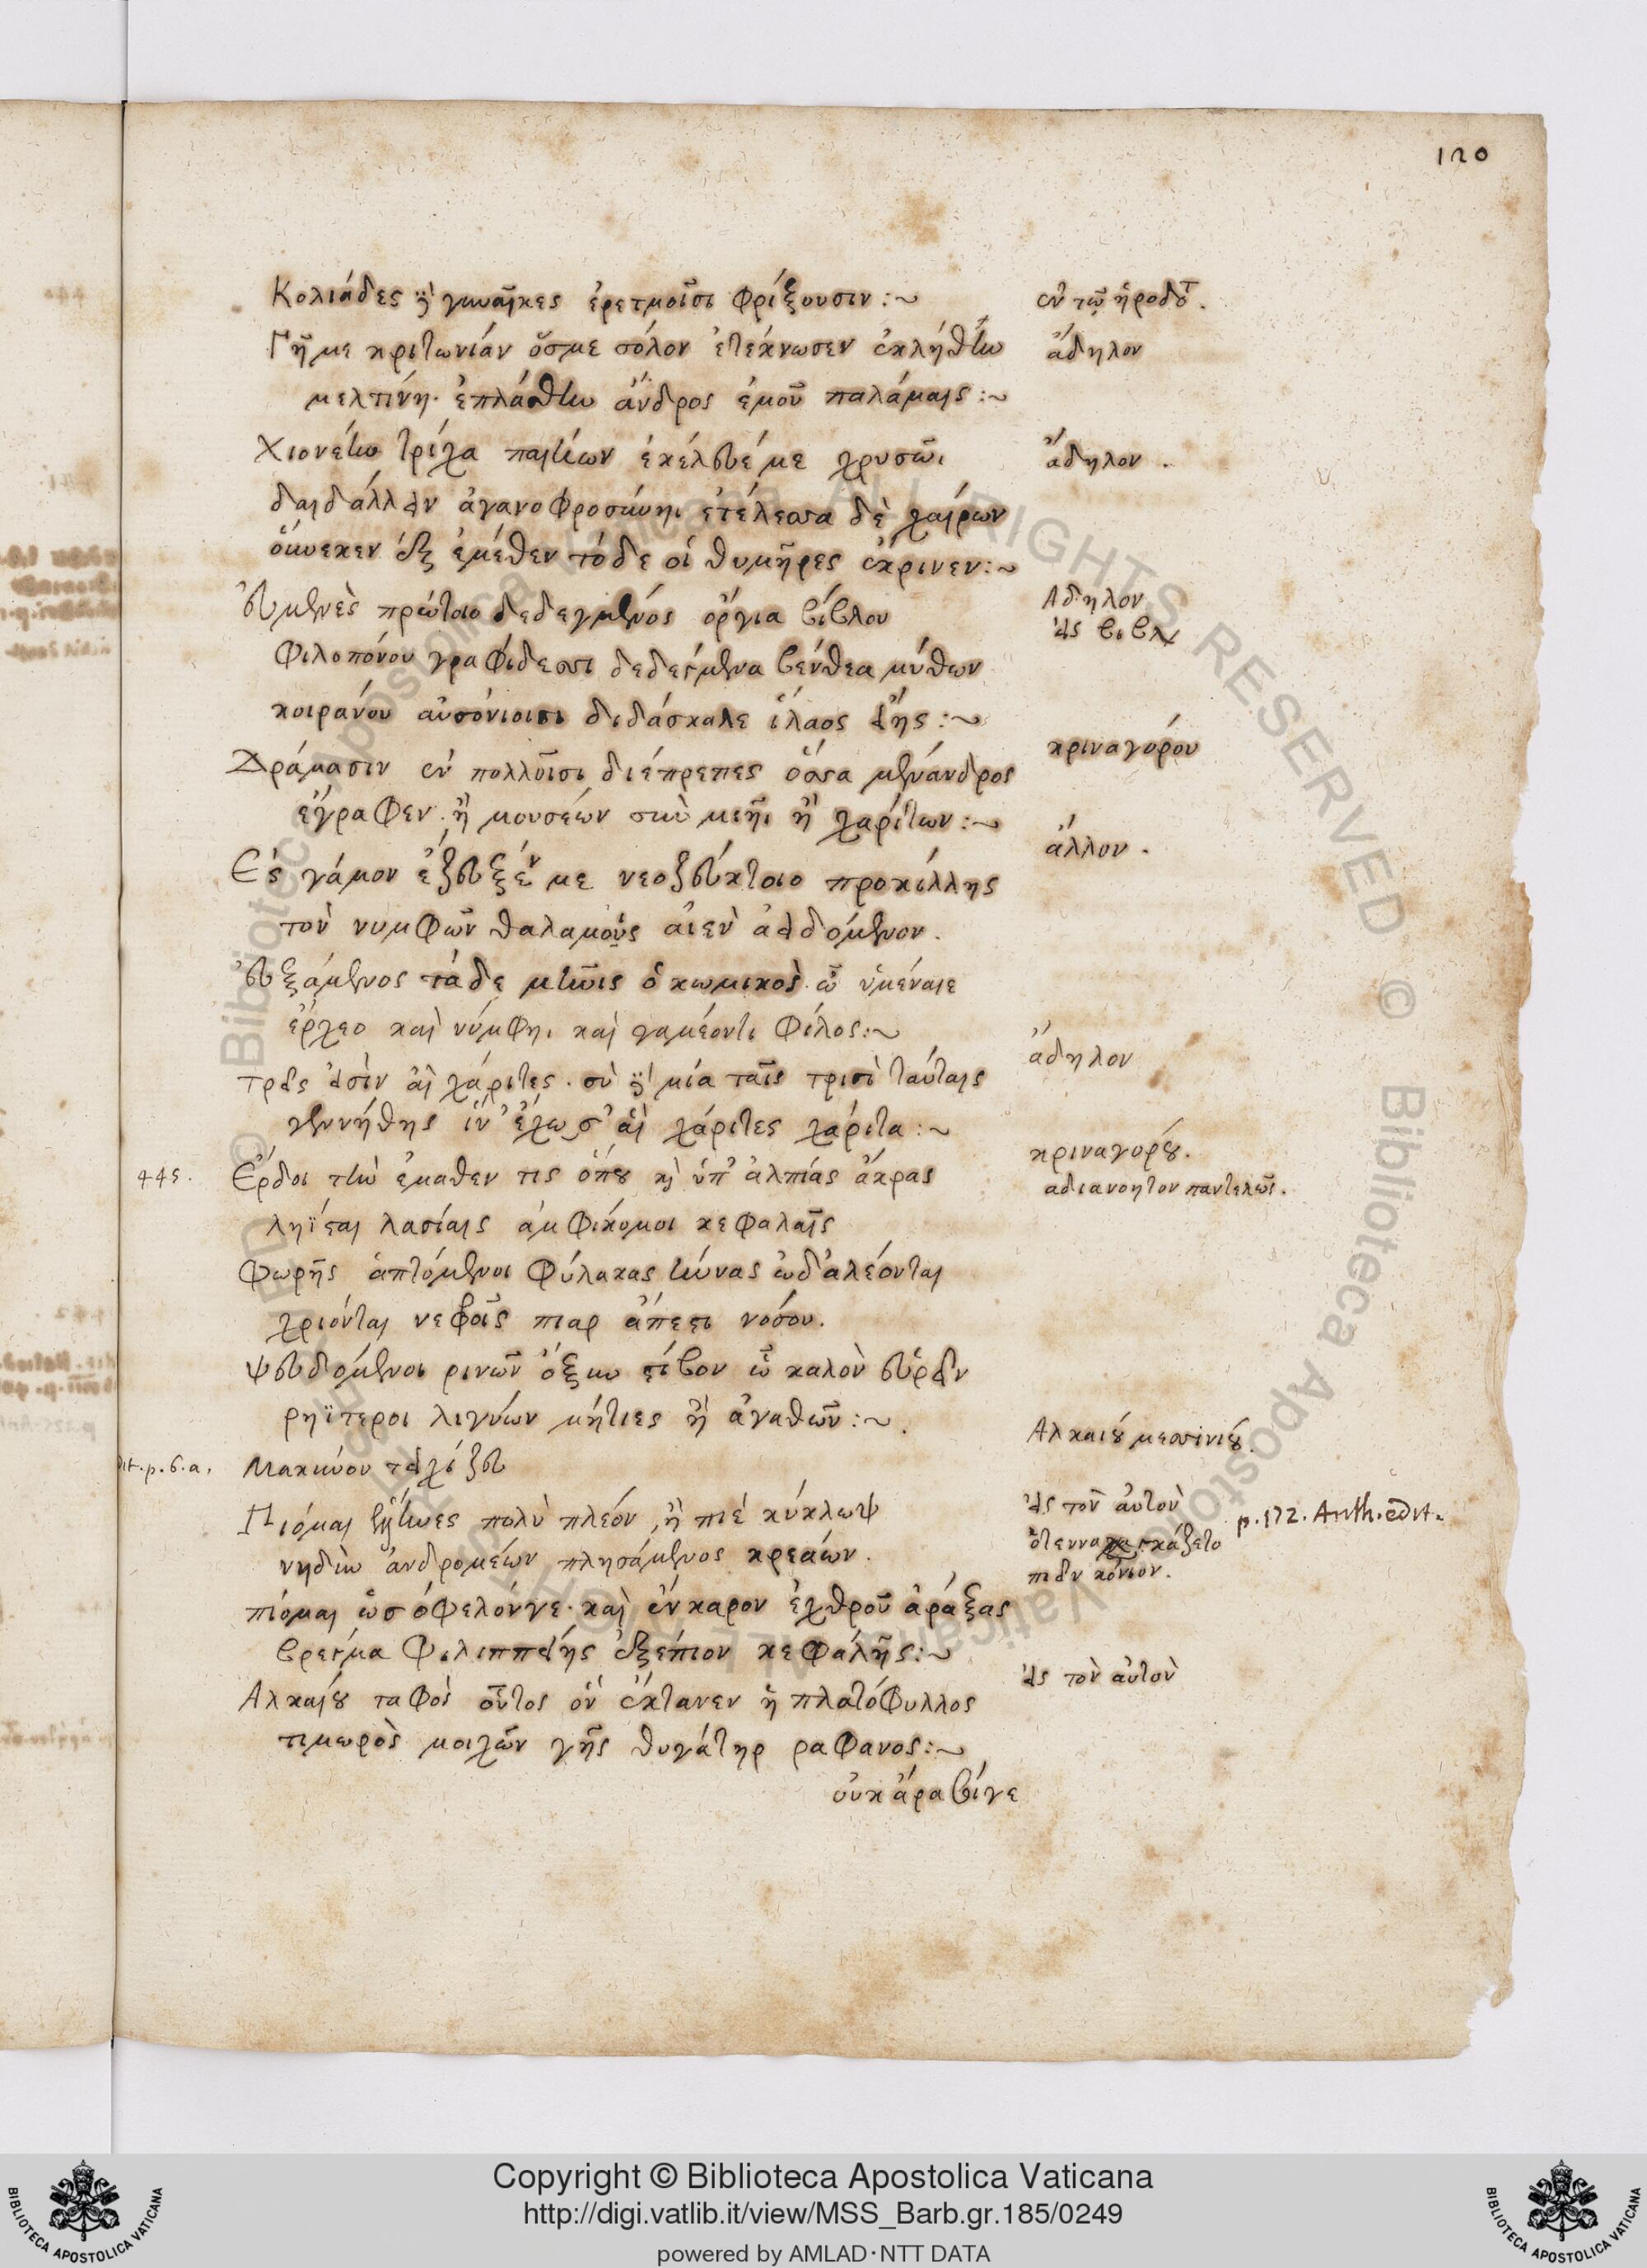 120
Κολιάδες δὲ γυναῖκες ἐρετμοῖσι φρίξουσιν:~
ἐν τῶ ἡροδότ.
Γῆμε κριτωνίαν ὅσμε σόλον ἐτέκνωσεν ἐκλήθην
ἄδηλον
μελτίνη. ἐπλάθην ἄνδρος ἐμοῦ παλάμαις:~
Χιονέην τρίχα παιίων ἐκέλευέ με χρυσῶι
ἄδηλον.
δαιδάλλειν ἀγανοφροσύνηι ἐτέλεσσα δὲ χαίρων
οὕνεκεν ἐξ ἐμέθεν τόδε οἱ θυμῆρες ἔκρινεν:~
εὐμενὲς πρώτοιο δεδεγμένος ὄργια βίβλου
Αδηλον
εἰς βιβλ
Φιλοπόνου γραφίδεσσι δεδεγμένα βένθεα μύθων
κοιράνου αὐσόνιοισι διδάσκαλε ἵλαος εἴης:~
Δράμασιν ἐν πολλοῖσι διέπρεπες ὅσσα μένανδρος
κριναγόρου
ἔγραφεν. ἢ μουσέων σὺν μιῆι ἢ χαρίτων:~
ἄλλον.
Ες γάμον ἐζευξέν με νεοζεύκτοιο προκίλλης
τὸν νυμφῶν θαλαμοὺς αἰὲν ἀειδόμενον.
εὐξάμενος τάδε μῆνις ὁ κωμικὸς. ὦ ὑμέναιε
ἔρχεο καὶ νύμφηι καὶ γαμέοντι φίλος:~
τρεῖς εἰσὶν αἱ χάριτες. σὺ δὲ μία ταῖς τρισὶ ταύταις
ἄδηλον
γεννήθης ἵν' ἔχωσ' αἱ χάριτες χάριτα:~
445.
Ερδοι τὴν ἔμαθεν τις ὅπου καὶ ὑπ' ἀλπίας ἄκρας
κριναγόρου.
αδιανοητον παντελῶς.
ληϊσται λασίαις ἀμφικομοι κεφαλαῖς
Φωρῆς ἁπτόμενοι φύλακας κύνας ὧδ' ἀλέονται
χρίονται νεφροῖς πιαρ ἄπεστι νόσου.
ψευδόμενοι ρινῶν ὄξην στίβον ὦ καλὸν εὑρεῖν
ρηϊτεροι λιγύων μήτιες ἢ ἀγαθῶν:~.
Αλκαίου μεσσινίου.
Μακύνου τειχίζευ
Πιόμαι ληναῖες πολὺ πλέον, ἢ πιέ κύκλωψ
εἰς τον αὐτον
p. 172. Anth. edit.
νηδὺν ἀνδρομέων πλησάμενος κρεάων.
πιεῖν κόνιον.
πίομαι ὡσ ὄφελόνγε. καὶ ἔνκαρον ἐχθροῦ ἀράξας
βρεγμα Φιλιππείης ἐξέπιον κεφάλῆς:~
Αλκαίου ταφος οὗτος ὃν ἔκτανεν ἡ πλατόφυλλος
εἰς τον αὐτον
τιμωρὸς μοιχῶν γῆς θυγάτηρ ραφανος:~
οὐκ ἄρα βίγε
Copyright © Biblioteca Apostolica Vaticana
http://digi.vatlib.it/view/MSS_Barb.gr.185/0249
powered by AMLAD·NTT DATA